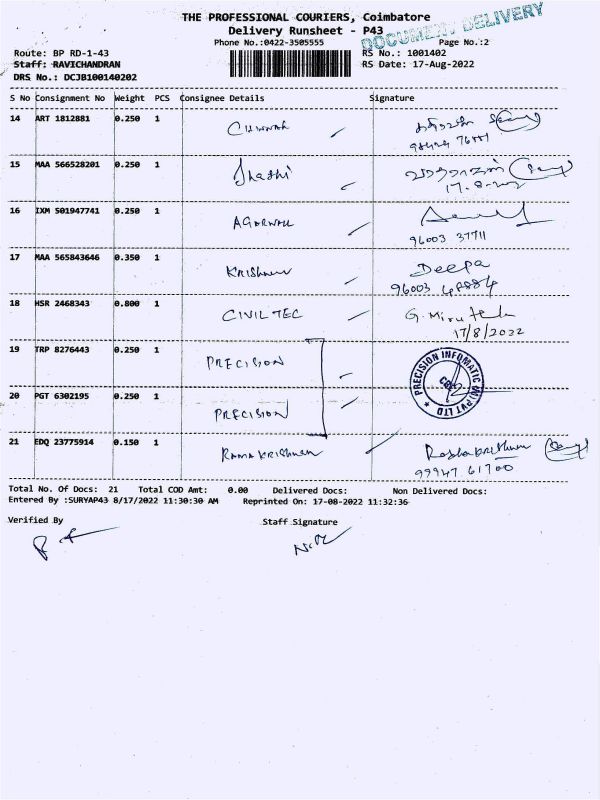 THE PROFESSIONAL COURIERS, Coimbatore
Delivery Runsheet - P43
DOCUMENT DELIVERY
Phone No.:0422-3505555
Page No.:2
Route: BP RD-1-43
RS No.: 1001402
Staff: RAVICHANDRAN
RS Date: 17-Aug-2022
DRS No.: DCJB100140202
S No Consignment No Weight PCS Consignee Details Signature
14 ART 1812881 0.250 1
15 MAA 566528201 0.250 1 Shashi
17-8-2022
16 IXM 501947741 0.250 1 AGARWAL
96003 37711
17 MAA 565843646 0.350 1 KRISHNAN Deepa
96003 48884
18 HSR 2468343 0.800 1 CIVIL TEC
17/8/2022
19 TRP 8276443 0.250 1 PRECISION
PRECISION INFOMATIC (M) PVT LTD
CBE
20 PGT 6302195 0.250 1 PRECISION
21 EDQ 23775914 0.150 1 RAMAKRISHNAN Radhakrishnan
99947 61700
Total No. Of Docs: 21 Total COD Amt: 0.00 Delivered Docs: Non Delivered Docs:
Entered By :SURYAP43 8/17/2022 11:30:30 AM Reprinted On: 17-08-2022 11:32:36
Verified By Staff Signature